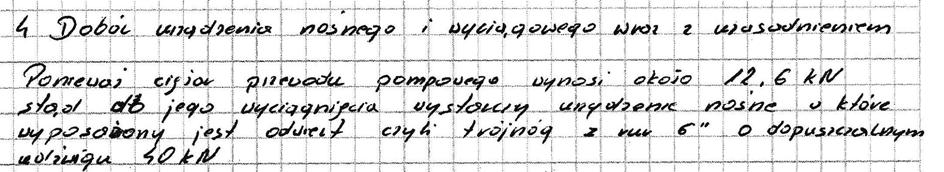 4 Dobór urządzenia nośnego i wyciągowego wraz z uzasadnieniem
Ponieważ ciężar przewodu pompowego wynosi około 12,6 kN
stąd do jego wyciągnięcia wystarczy urządzenie nośne w które
wyposażony jest odwiert czyli trójnóg z rur 6" o dopuszczalnym
udźwigu 40 kN